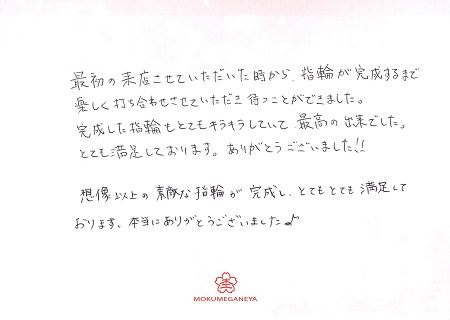 最初の来店させていただいた時から、指輪が完成するまで
楽しく打ち合わせさせていただき待つことができました。
完成した指輪もとてもキラキラしていて、最高の出来でした。
とても満足しております。ありがとうございました!!
想像以上の素敵な指輪が完成し、とてもとても満足して
おります。本当にありがとうございました♪
MOKUMEGANEYA